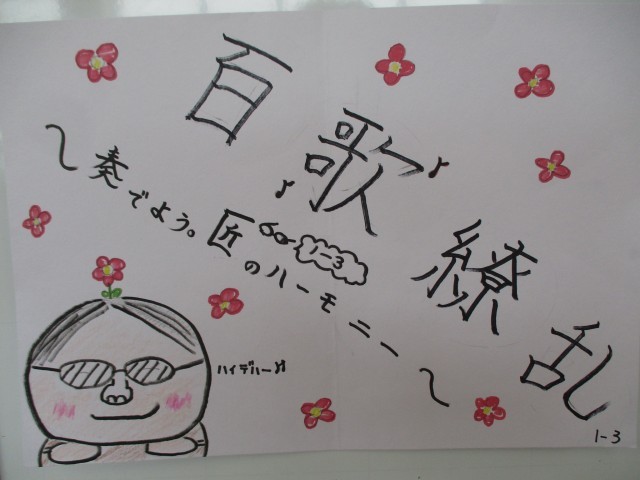 百歌繚乱
～奏でよう。匠のハーモニー～
1-3
ハイデハー♬
1-3